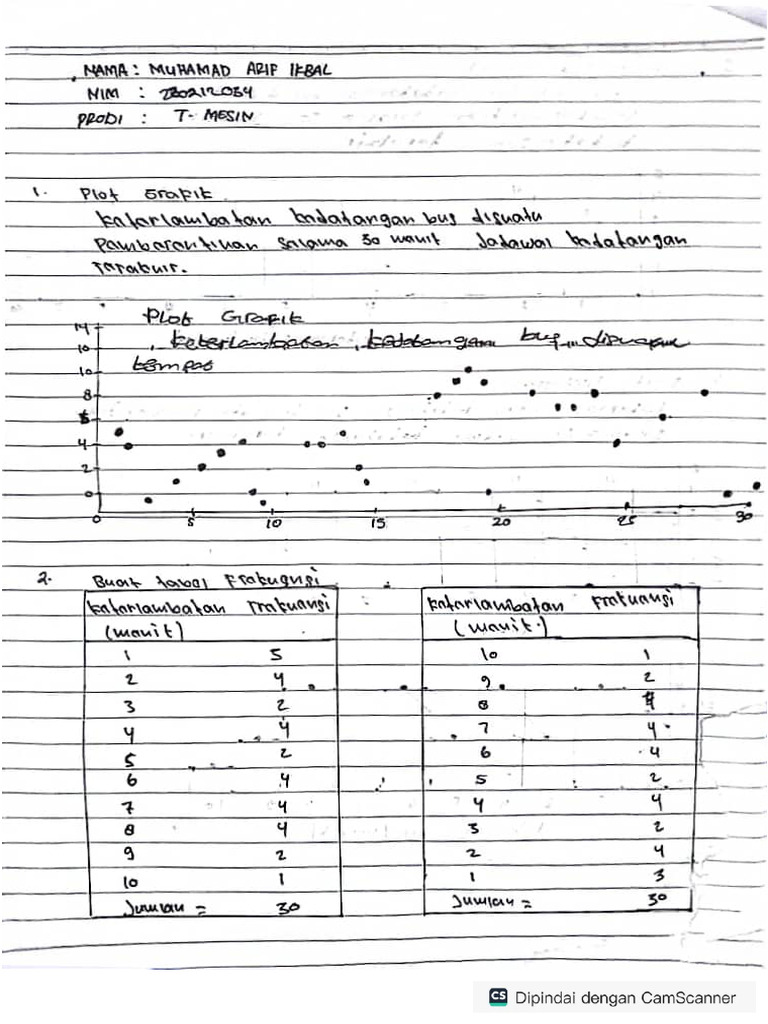 NAMA : MUHAMAD ARIF IKBAL
NIM : 230212034
PRODI : T. MESIN
1. Plot Grafik
Katarlambatan kadatangan bus disuatu
Pambarantinan Salama 30 manit Jadawal kadatangan
Tarabuir.
Plot Grafik
keterlambatan kedatangan bus disuatu
tempat
14
10
10
8
6
4
2
0
0 5 10 15 20 25 30
2. Buat tabal Frakuansi
katarlambatan Frakuansi
(manit)
1 5
2 4
3 2
4 4
5 2
6 4
7 4
8 4
9 2
10 1
Jumlah = 30
katarlambatan Frakuansi
(manit.)
10 1
9 2
8 4
7 4
6 4
5 2
4 4
3 2
2 4
1 3
Jumlah = 30
CS Dipindai dengan CamScanner